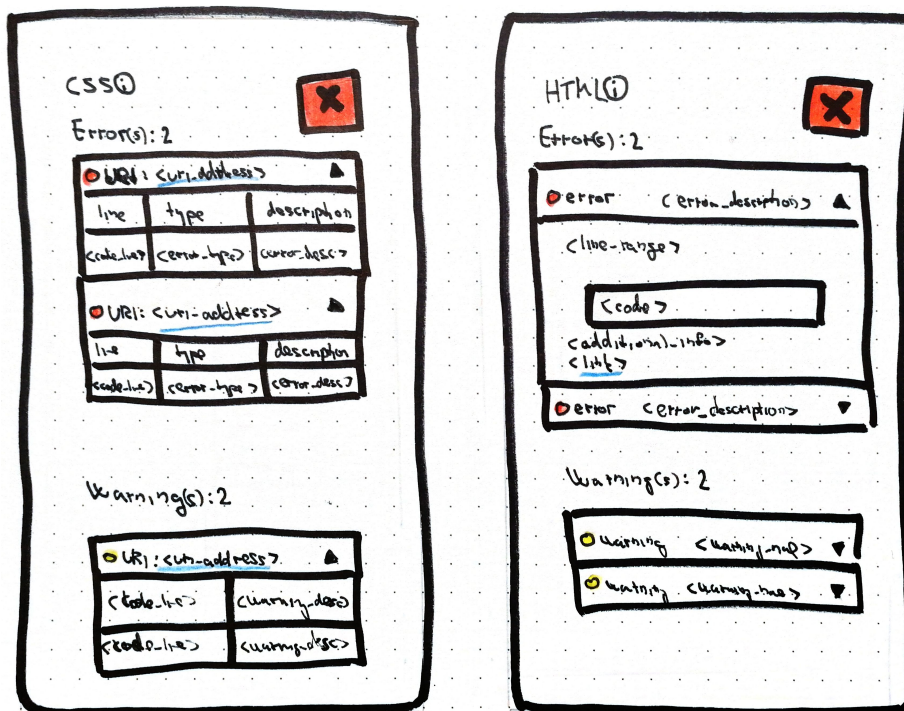 CSS ⓘ
Error(s): 2
URI: <uri_address>
line type description
<code_line> <error_type> <error_desc>
URI: <uri_address>
line type description
<code_line> <error_type> <error_desc>
Warning(s): 2
URI: <uri_address>
<code_line> <warning_desc>
<code_line> <warning_desc>
HTML ⓘ
Error(s): 2
error <error_description>
<line_range>
<code>
<additional_info>
<link>
error <error_description>
Warning(s): 2
warning
warning